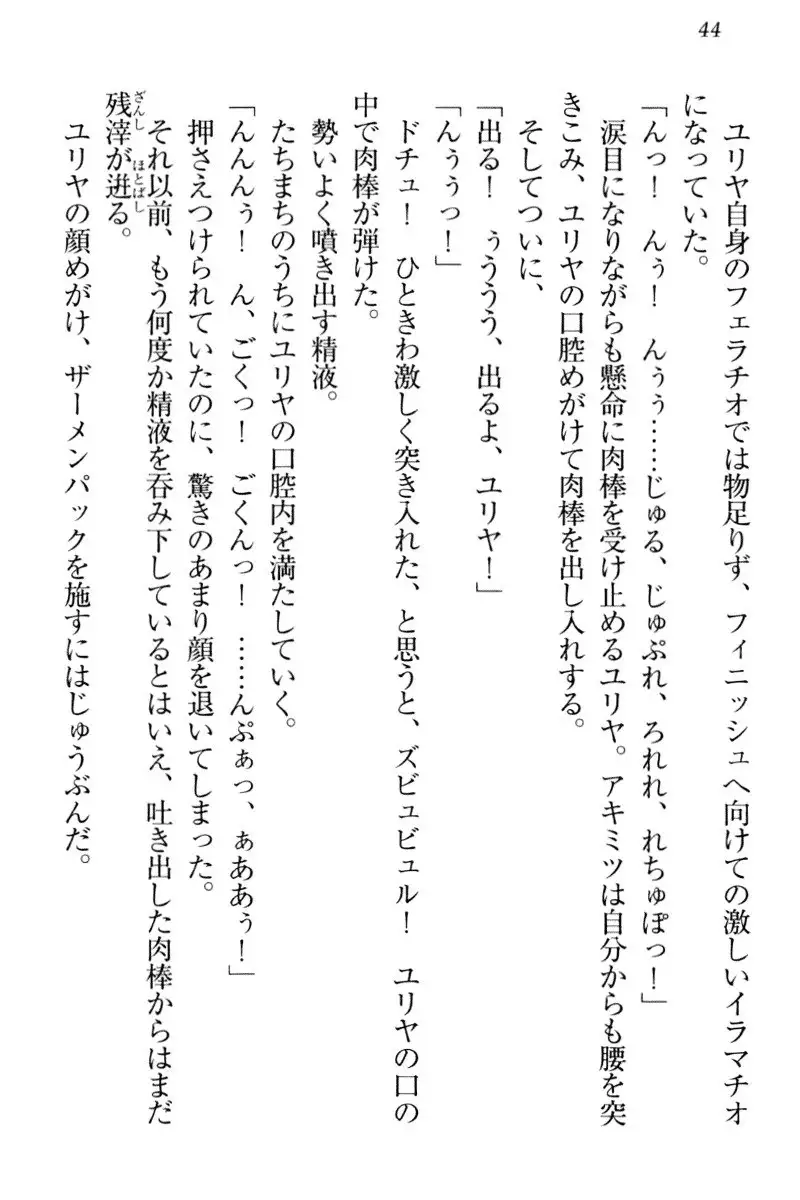 44
ユリヤ自身のフェラチオでは物足りず、フィニッシュへ向けての激しいイラマチオ
になっていた。
「んっ！　んぅ！　んぅぅ……じゅる、じゅぷれ、ろれれ、れちゅぽっ！」
涙目になりながらも懸命に肉棒を受け止めるユリヤ。アキミツは自分からも腰を突
きこみ、ユリヤの口腔めがけて肉棒を出し入れする。
そしてついに、
「出る！　ぅううう、出るよ、ユリヤ！」
「んぅぅっ！」
ドチュ！　ひときわ激しく突き入れた、と思うと、ズビュビュル！　ユリヤの口の
中で肉棒が弾けた。
勢いよく噴き出す精液。
たちまちのうちにユリヤの口腔内を満たしていく。
「んんんぅ！　ん、ごくっ！　ごくんっ！　……んぷぁっ、ぁああぅ！」
押さえつけられていたのに、驚きのあまり顔を退いてしまった。
それ以前、もう何度か精液を呑み下しているとはいえ、吐き出した肉棒からはまだ
残滓が迸る。
ざんし
ほとばし
ユリヤの顔めがけ、ザーメンパックを施すにはじゅうぶんだ。